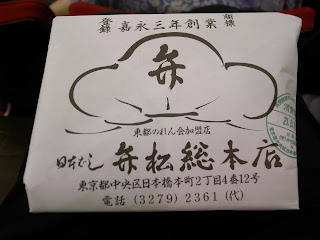 登録 嘉永三年創業 商標
弁
東都のれん会加盟店
日本ばし 弁松総本店
東京都中央区日本橋本町2丁目4番12号
電話 (3279) 2361 (代)